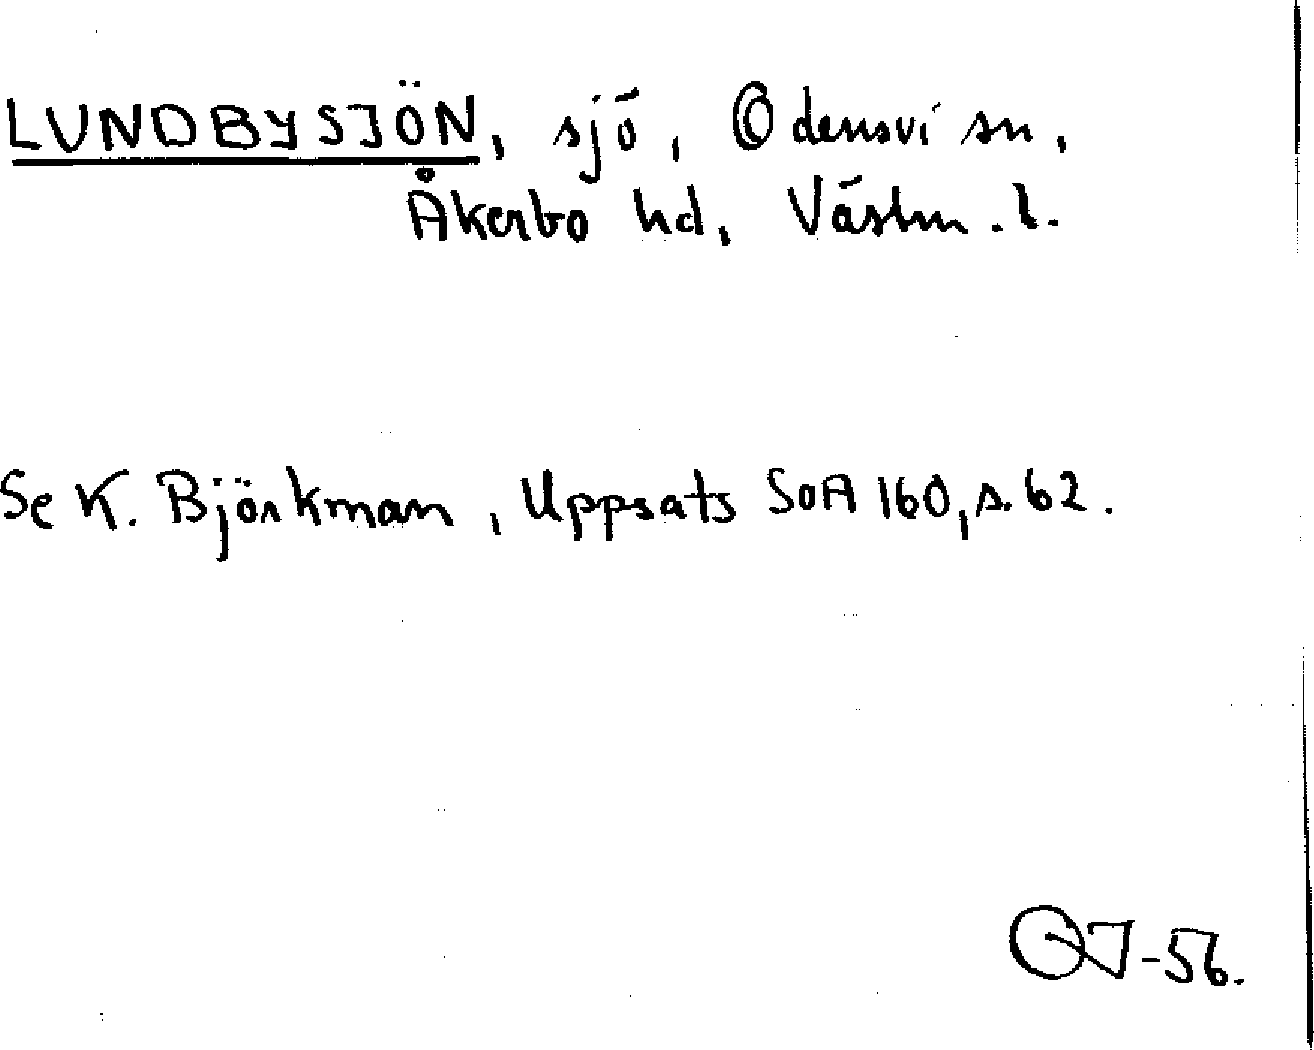 LUNDBYSJÖN, sjö, Odensvi sn,
Åkerbo hd, Västm. l.
Se K. Björkman, Uppsats SOA 160, s. 62.
QJ-56.